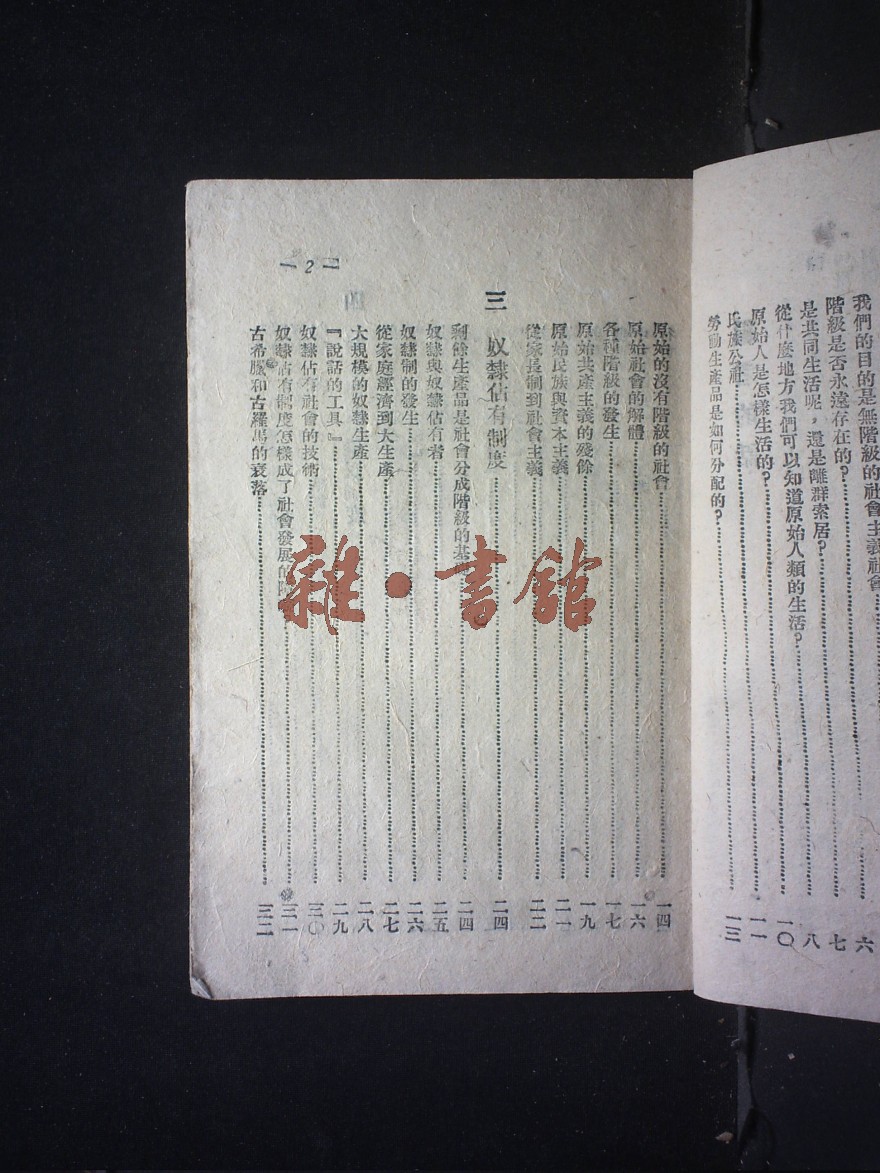 我們的目的是無階級的社會主義社會 六
階級是否永遠存在的？ 七
是共同生活呢，還是離群索居？ 八
從什麼地方我們可以知道原始人類的生活？ 一〇
原始人是怎樣生活的？ 一一
氏族公社 一三
勞動生產品是如何分配的？
— 2 —
原始的沒有階級的社會 一四
原始社會的解體 一六
各種階級的發生 一七
原始共產主義的殘餘 一九
原始民族與資本主義 二一
從家長制到社會主義 二二
三 奴隸佔有制度 二四
剩餘生產品是社會分成階級的基 二四
奴隸與奴隸佔有者 二五
奴隸制的發生 二六
從家庭經濟到大生產 二七
大規模的奴隸生產 二八
『說話的工具』 二九
奴隸佔有社會的技術 三〇
奴隸佔有制度怎樣成了社會發展的 三一
古希臘和古羅馬的衰落 三二
雜·書館